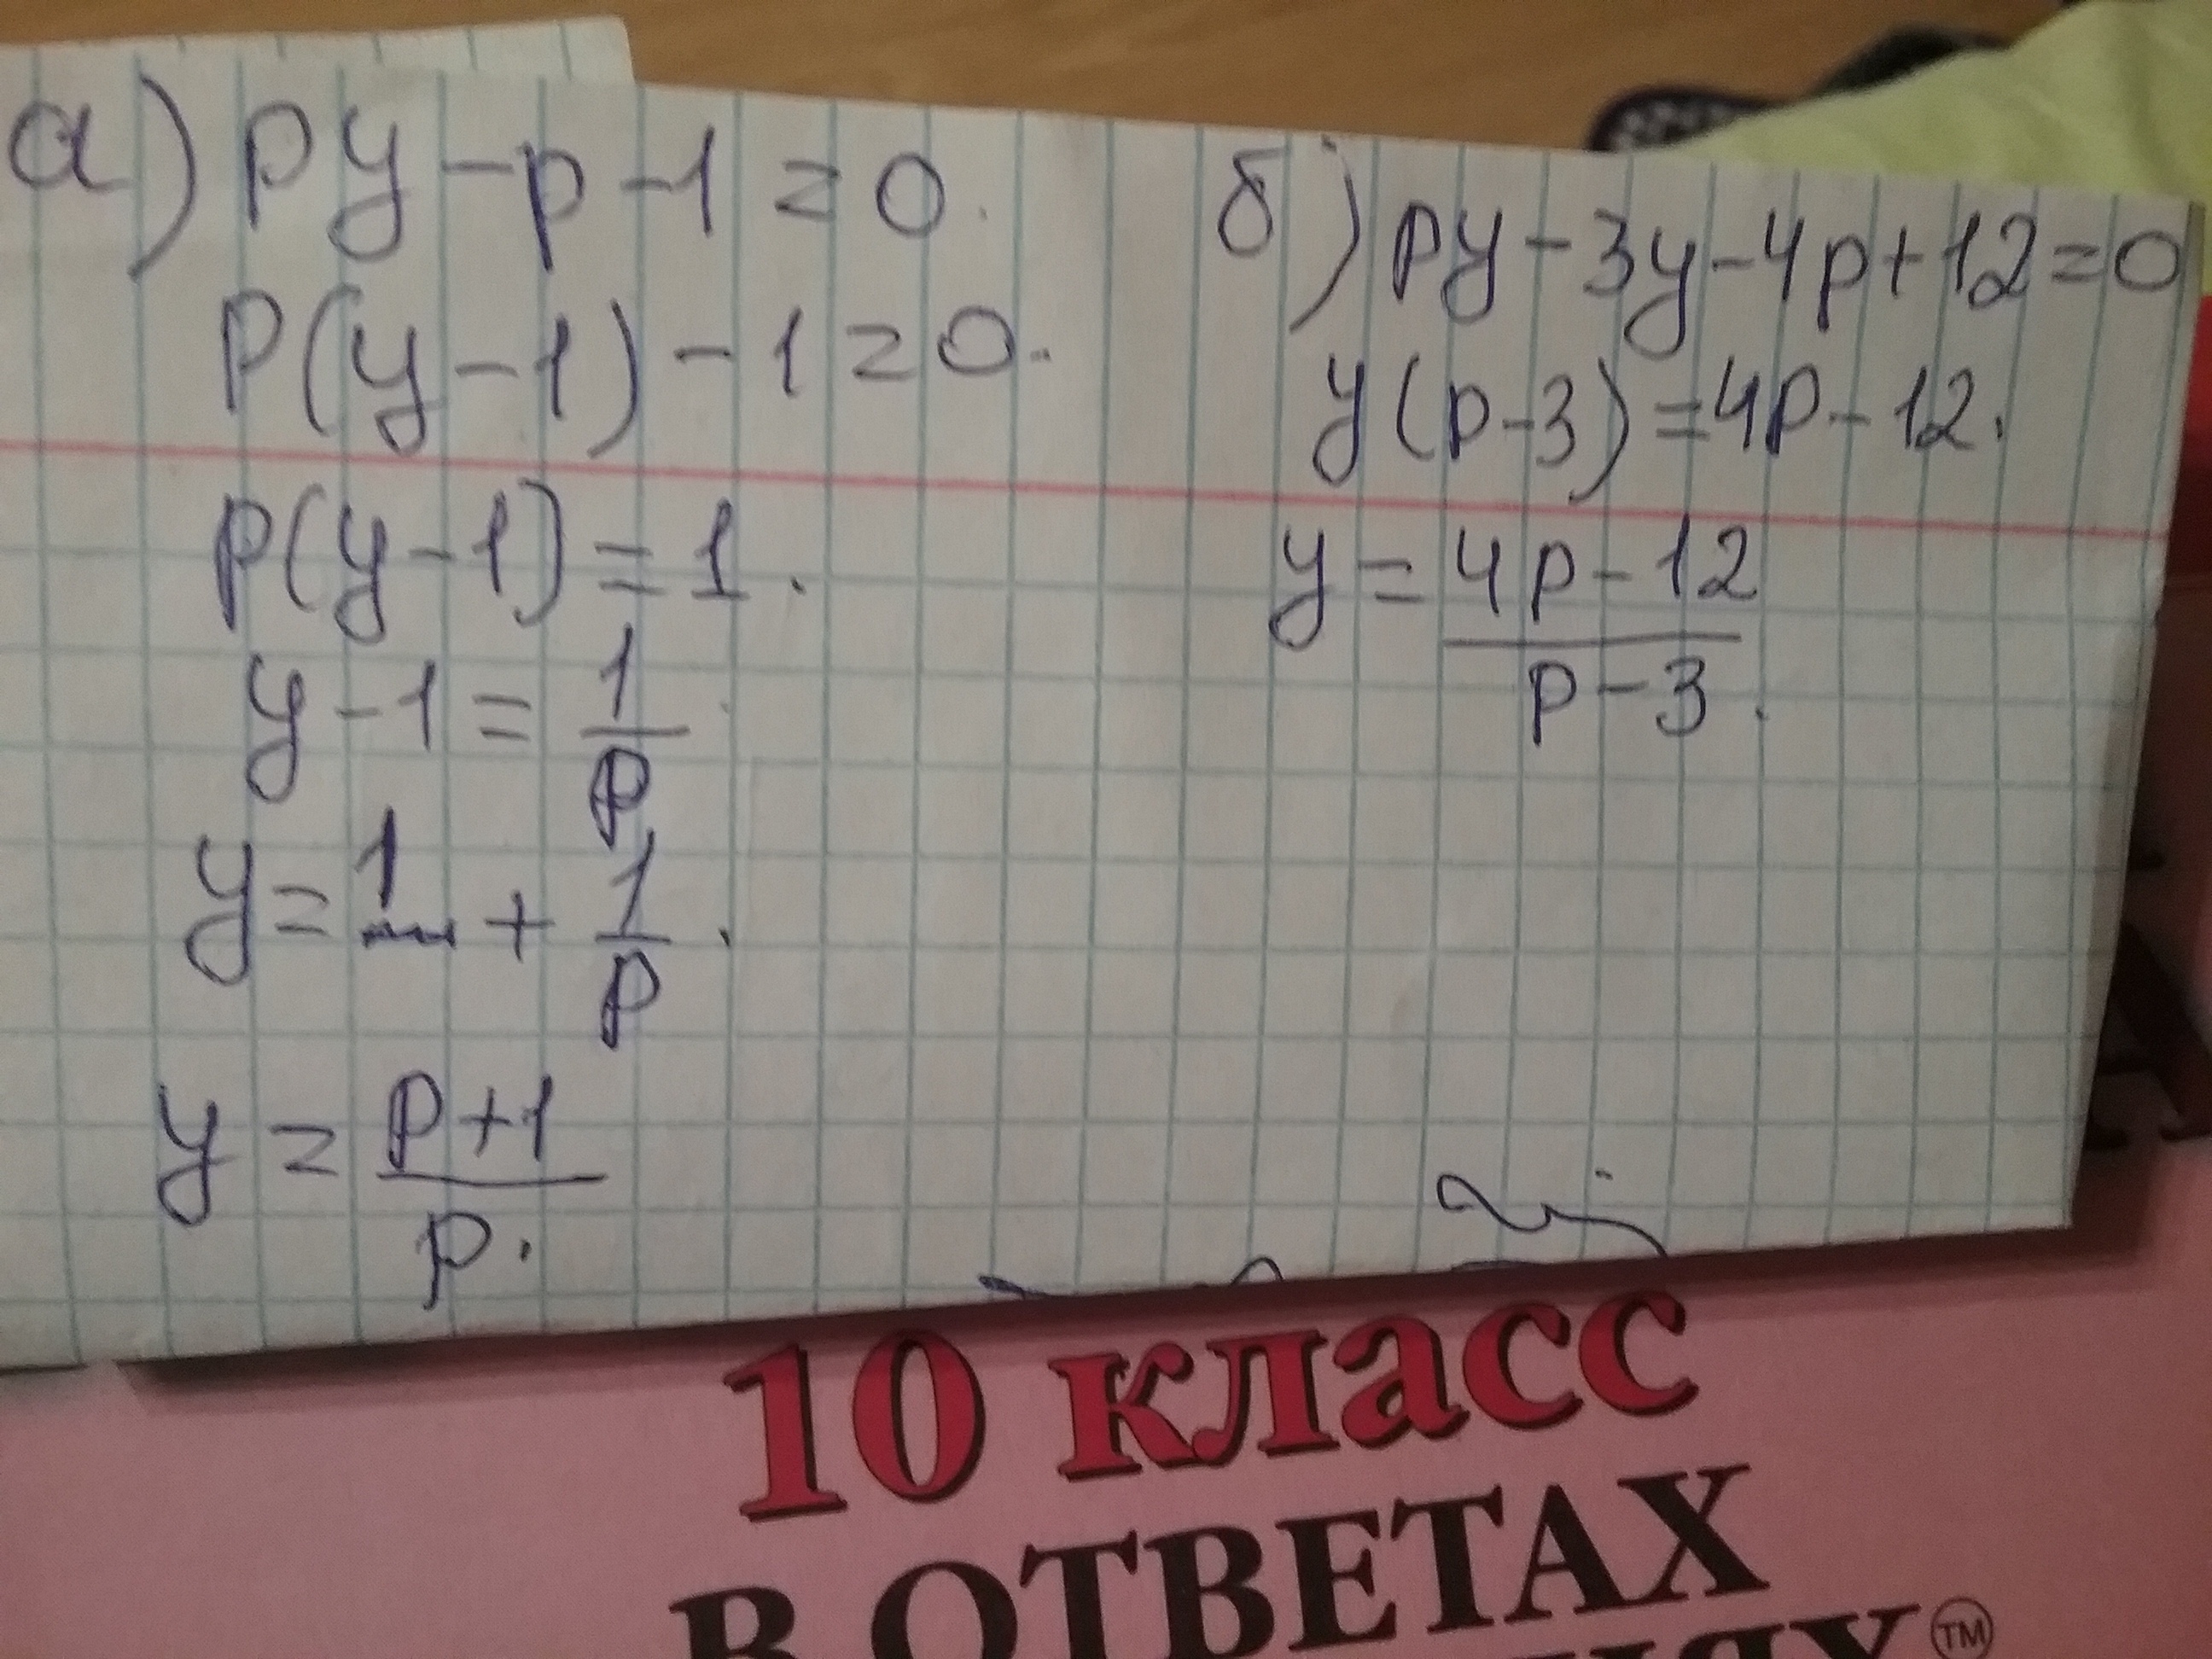 а) py-p-1=0.
P(y-1)-1=0.
P(y-1)=1.
y-1=1/P
y=1+1/P.
y=P+1/p.
б) py-3y-4p+12=0
y(p-3)=4p-12.
y=4p-12/p-3.
10 класс
В ОТВЕТАХ
TM